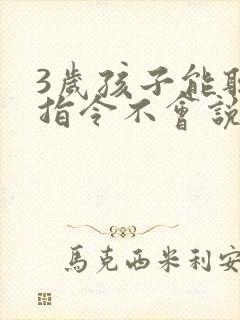 3歲孩子能聽
指令不會說
馬克西米利安